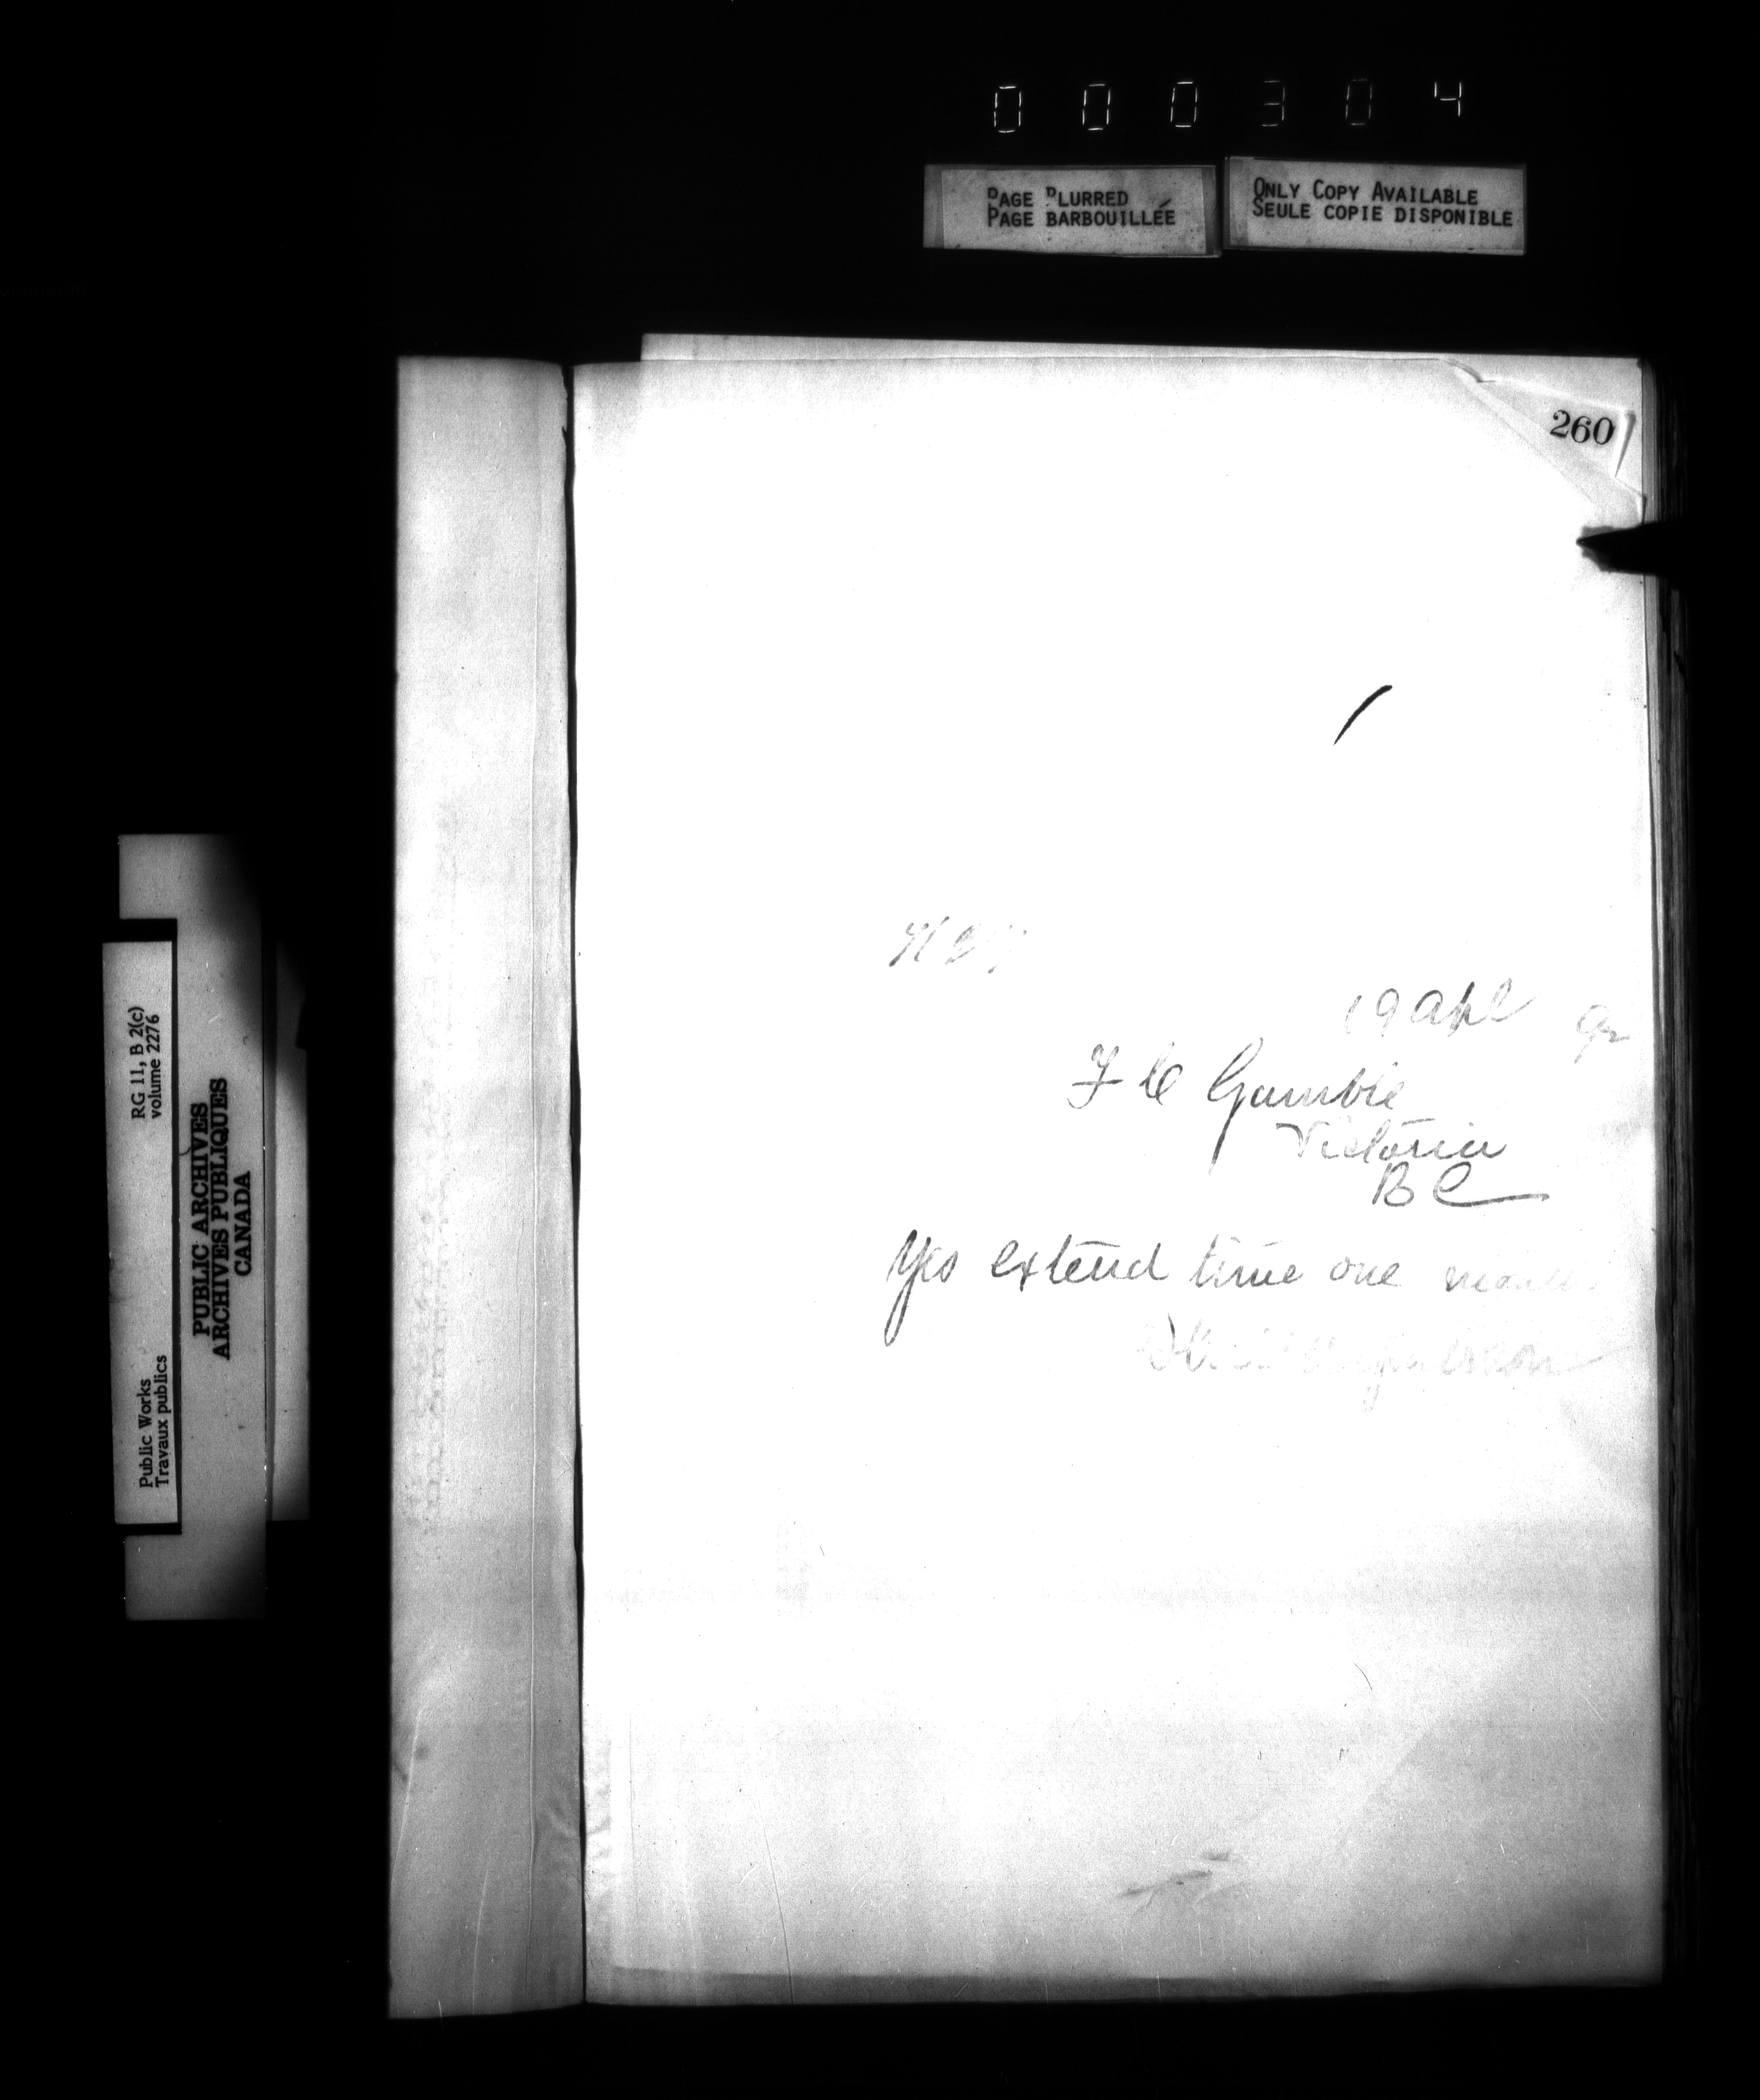 000304
PAGE BLURRED
PAGE BARBOUILLÉE
ONLY COPY AVAILABLE
SEULE COPIE DISPONIBLE
260
19 Apl
F C Gamble
Victoria
B C
Yes extend time one month
RG 11, B 2(c)
volume 2276
Public Works
Travaux publics
PUBLIC ARCHIVES
ARCHIVES PUBLIQUES
CANADA